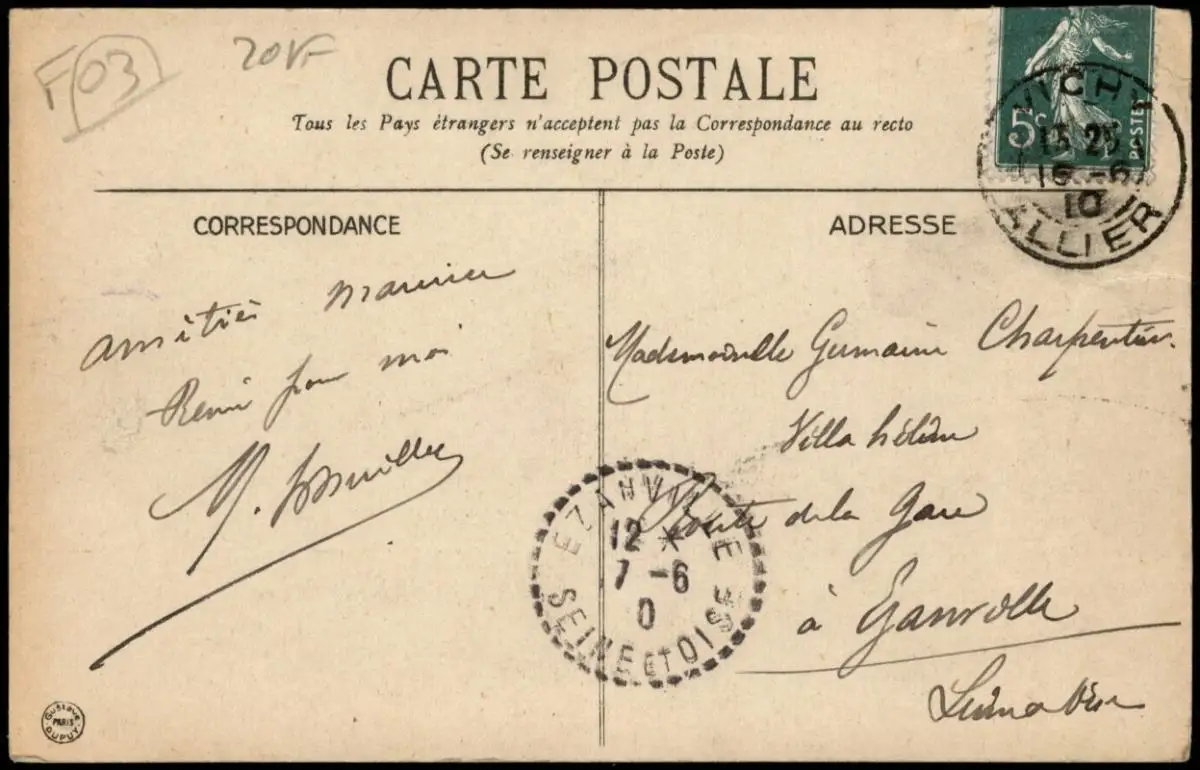 F 03
20F
CARTE POSTALE
Tous les Pays étrangers n'acceptent pas la Correspondance au recto
(Se renseigner à la Poste)
5c
POSTES
VICHY
15 25
16 -6
10
ALLIER
CORRESPONDANCE
ADRESSE
Amitiés Maurice
pour moi
M.
Mademoiselle Germaine Charpentier
Villa hélène
Route de la Gare
à Ezanville
Seine et Oise
EZANVILLE
12 *
7 -6
0
SEINE ET OISE
Gustave
PARIS
DUPUY